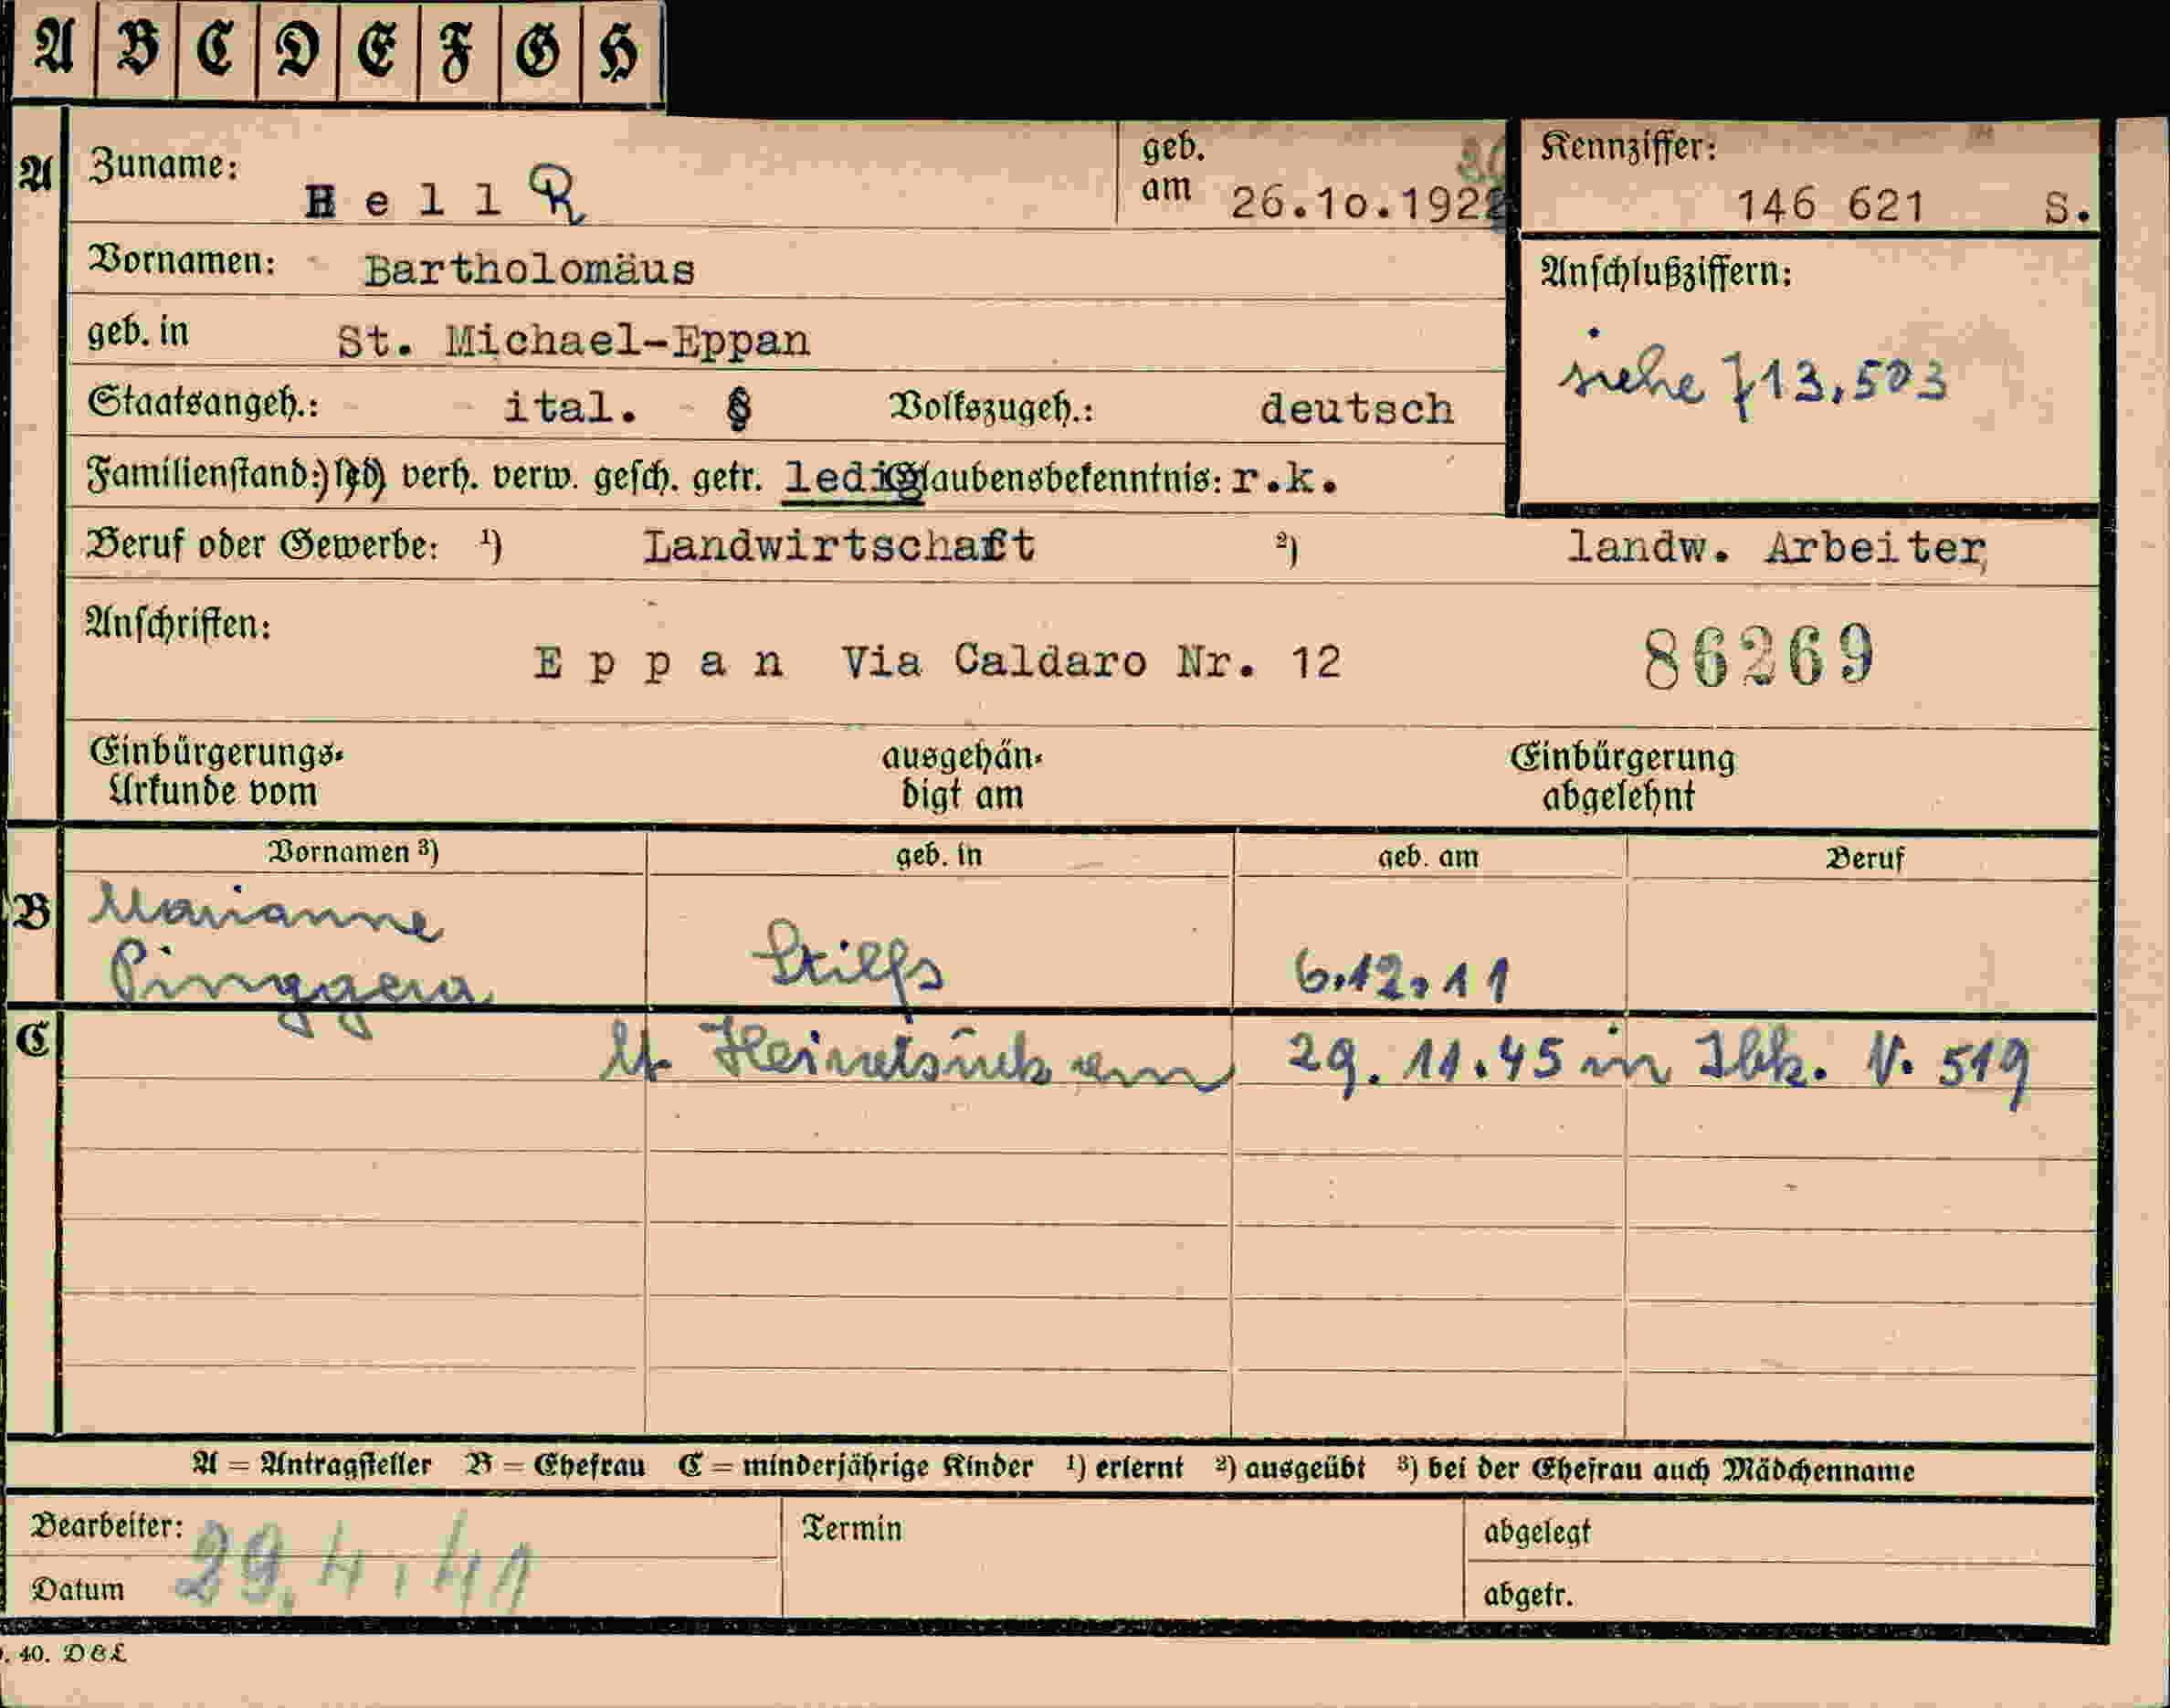 A B C D E F G H
A Zuname: Hell R geb. am 26.10.1922 Kennziffer: 146 621 S.
Vornamen: Bartholomäus Anschlußziffern:
geb. in St. Michael-Eppan siehe 713.503
Staatsangeh.: ital. § Volkszugeh.: deutsch
Familienstand: verh. verw. gesch. getr. ledig Glaubensbekenntnis: r.k.
Beruf oder Gewerbe: ¹) Landwirtschaft ²) landw. Arbeiter
Anschriften:
Eppan Via Caldaro Nr. 12 86269
Einbürgerungs- ausgehän- Einbürgerung
Urkunde vom digt am abgelehnt
Vornamen ³) geb. in geb. am Beruf
B Marianne
Pinggera Stilfs 6.12.11
C lt am 29.11.45 in Ibk. V. 519
A = Antragsteller B = Ehefrau C = minderjährige Kinder ¹) erlernt ²) ausgeübt ³) bei der Ehefrau auch Mädchenname
Bearbeiter: Termin abgelegt
Datum 29.4.41 abgetr.
. 40. D&L